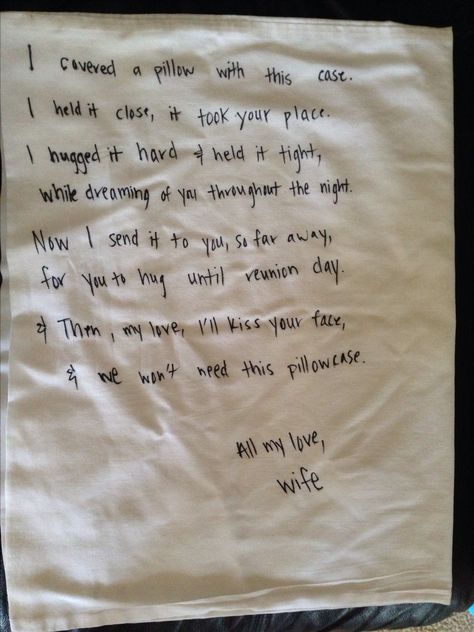 I covered a pillow with this case.
I held it close, it took your place.
I hugged it hard & held it tight,
while dreaming of you throughout the night.
Now I send it to you, so far away,
for you to hug until reunion day.
& Then, my love, I'll kiss your face,
& we won't need this pillowcase.
All my love,
Wife